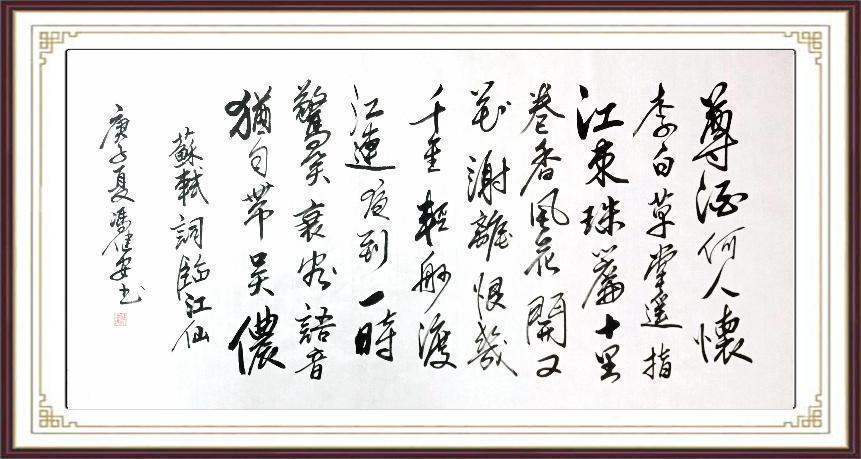 尊酒何人懷
李白草堂遥指
江東珠簾十里
卷香風花開又
花謝離恨幾
千重輕舸渡
江連夜到一時
驚笑衰容語音
猶自帶吴儂
蘇軾詞臨江仙
庚子夏馮健安书